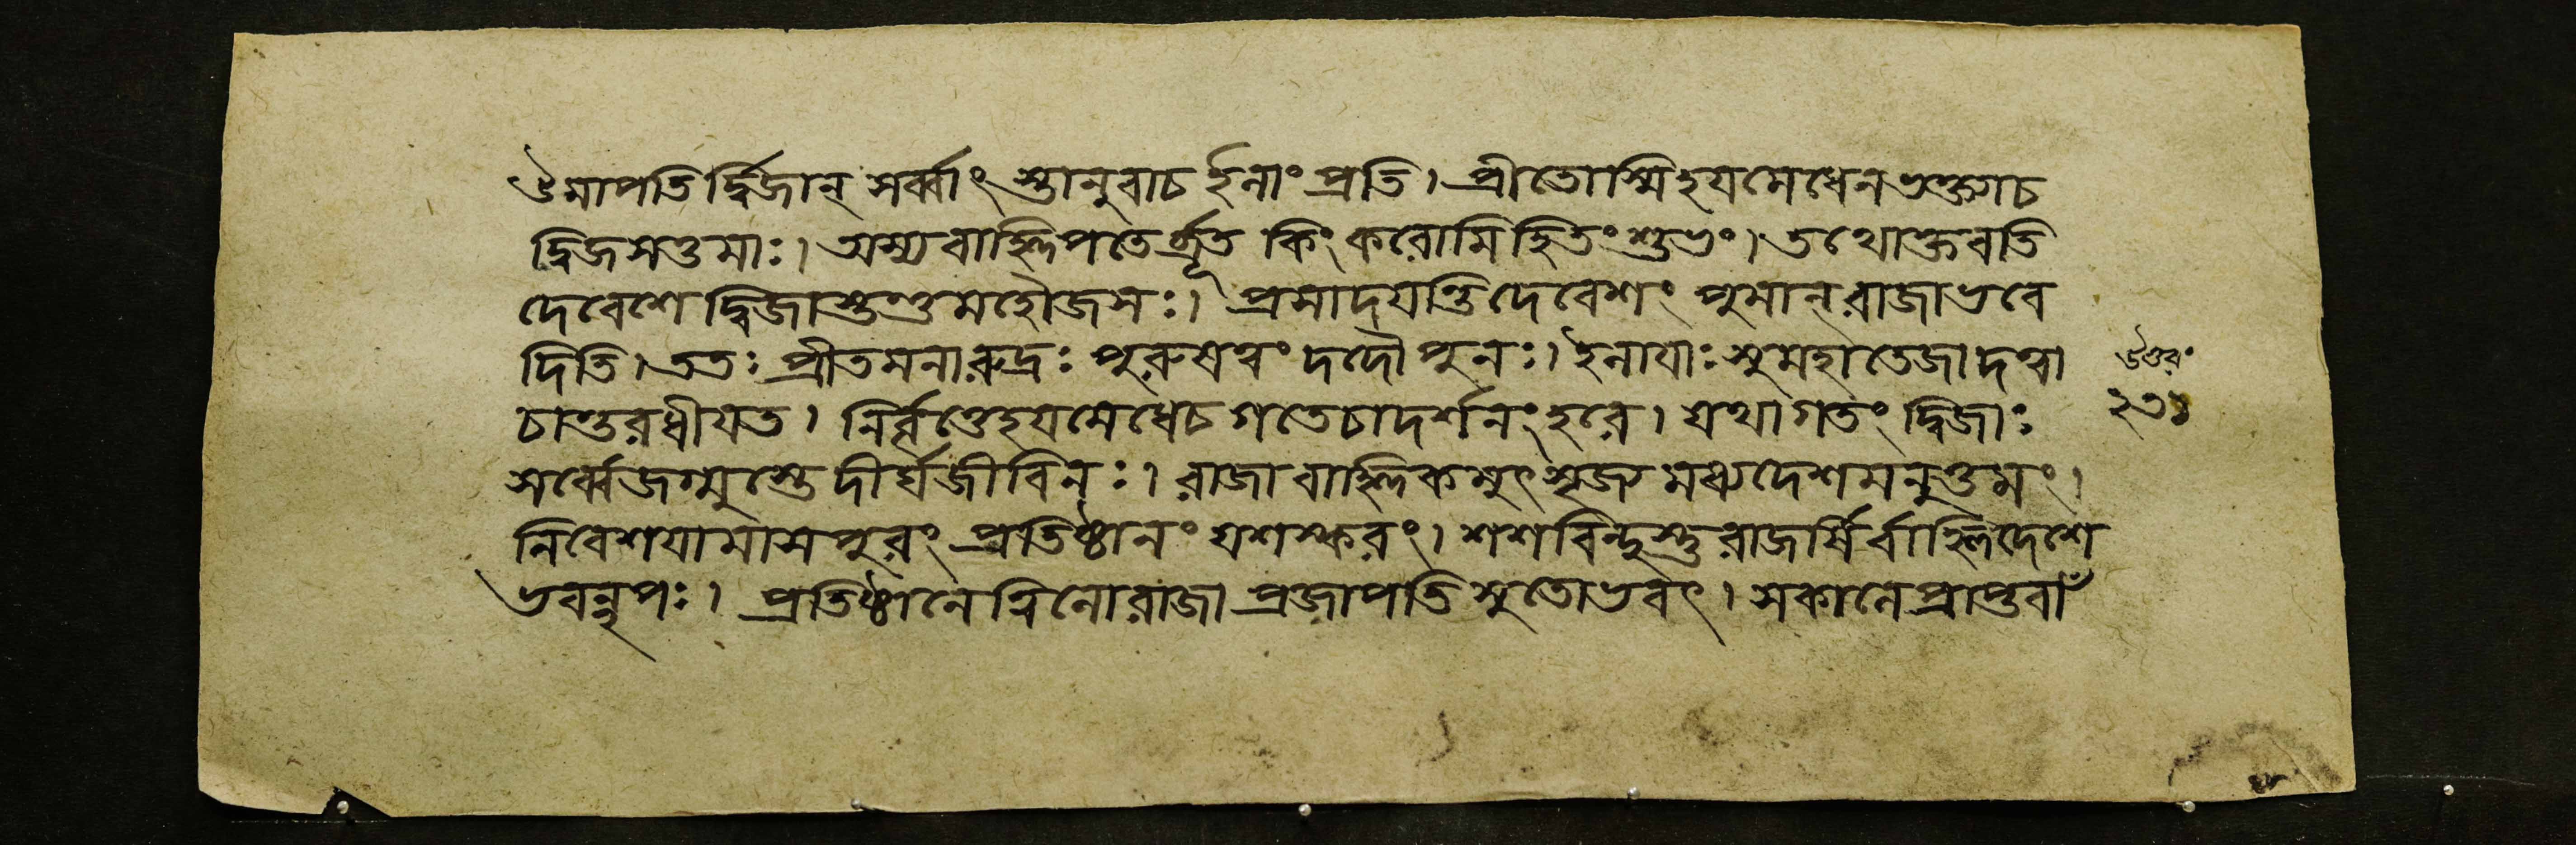 উমাপতির্দ্বিজান্ সর্ব্বাংস্তানুবাচ ইলাং প্রতি। প্রীতোস্মি হয়মেধেন ভক্ত্যাচ
দ্বিজসত্তমাঃ। অস্য বাহ্লিপতের্ব্রূত কিং করোমি হিতং শুভং। তথোক্তবতি
দেবেশে দ্বিজাস্তুশুমহৌজসঃ। প্রসাদয়ন্তি দেবেশং পুমান্ রাজা ভবে
দিতি। ততঃ প্রীতমনা রুদ্রঃ পুরুষত্বং দদৌ পুনঃ। ইলায়াঃ সুমহাতেজা দত্ত্বা
চান্তরধীয়ত। নির্ব্বৃত্তে হয়মেধেচ গতেচাদর্শনং হরে। যথাগতং দ্বিজাঃ
সর্ব্বে জগ্মুস্তে দীর্ঘজীবিনঃ। রাজা বাহ্লিকমুৎসৃজ্য মধ্যদেশমনুত্তমং।
নিবেশয়ামাস পুরং প্রতিষ্ঠানং যশস্করং। শশবিন্দুস্তু রাজর্ষির্বাহ্লিদেশে
ভবন্নৃপঃ। প্রতিষ্ঠানে ত্বিলো রাজা প্রজাপতিসুতোভবৎ। সকালে প্রাপ্তবাঁ
উত্তর
২৩১